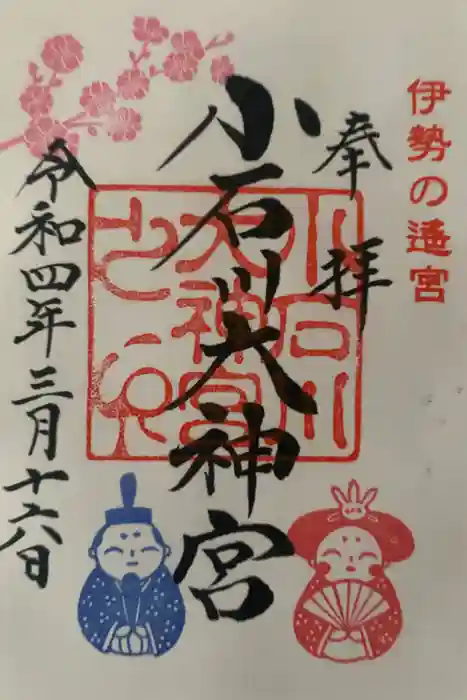 伊勢の遥宮
奉拝
小石川大神宮
令和四年三月十六日
小石川
大神宮
之印